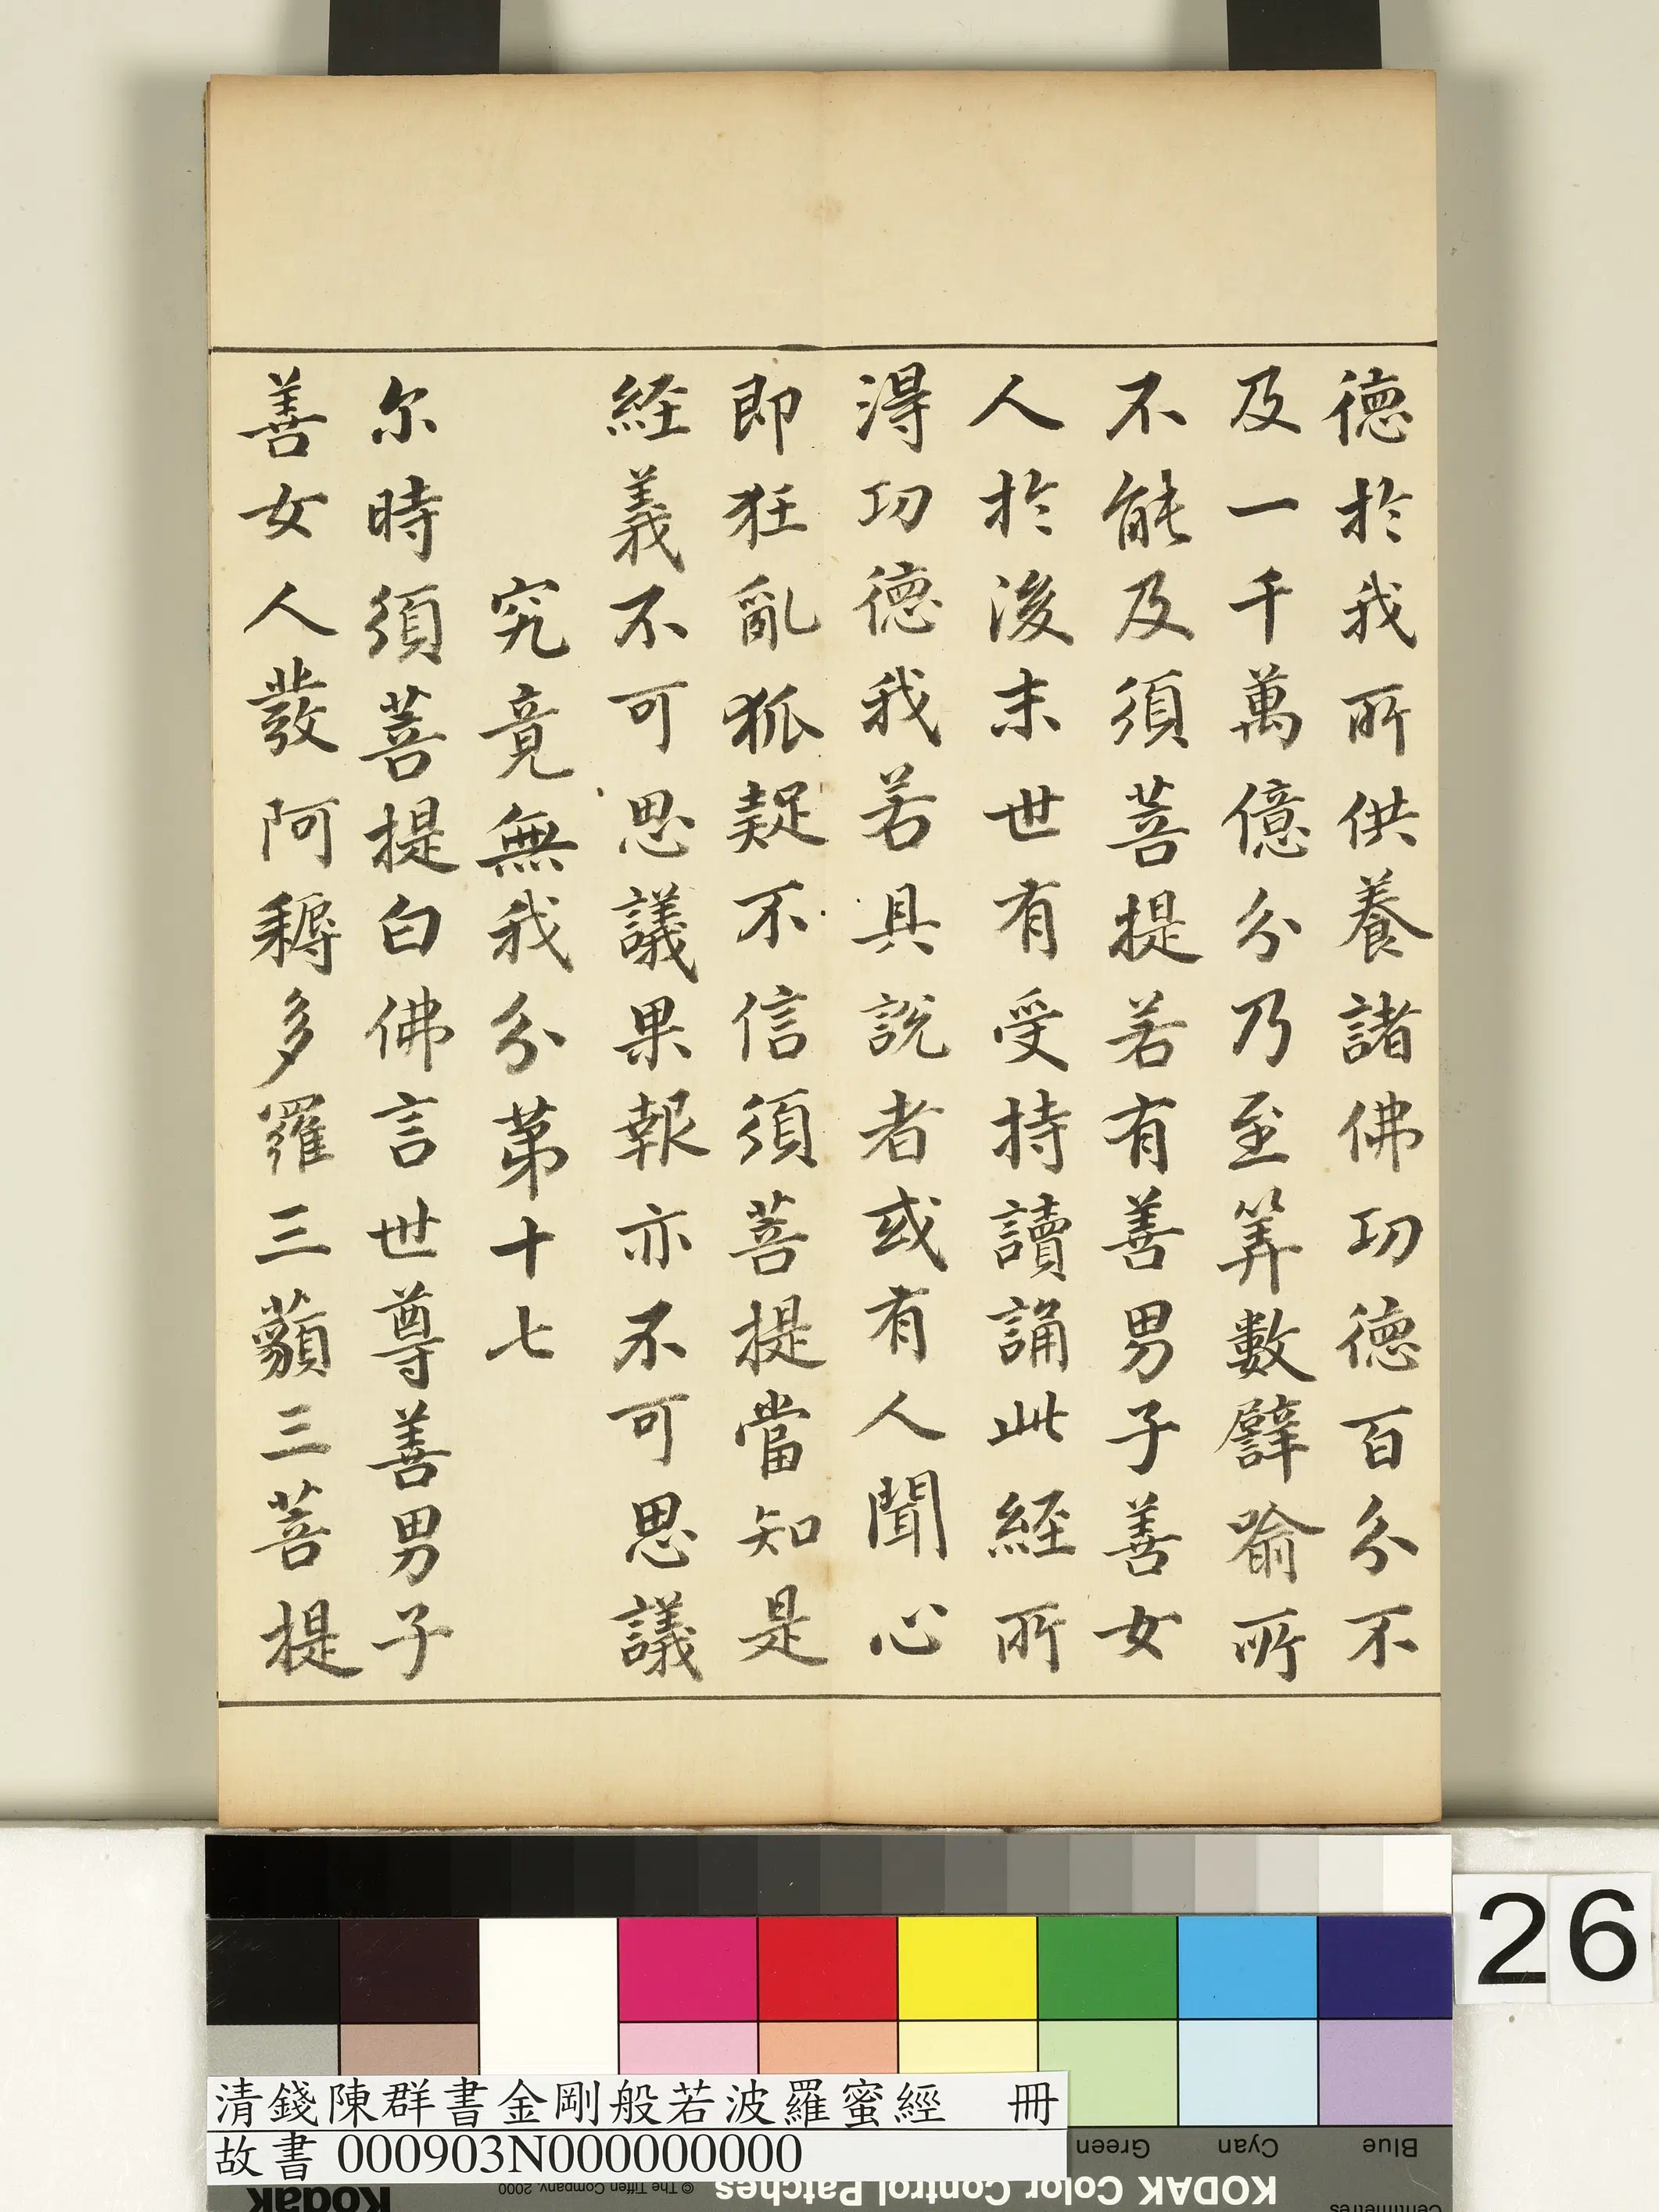 德於我所供養諸佛功德百分不
及一千萬億分乃至筭數譬喻所
不能及須菩提若有善男子善女
人於後末世有受持讀誦此經所
得功德我若具說者或有人聞心
即狂亂狐疑不信須菩提當知是
経義不可思議果報亦不可思議
究竟無我分第十七
尔時須菩提白佛言世尊善男子
善女人發阿耨多羅三藐三菩提
26
清錢陳群書金剛般若波羅蜜經 冊
故書 000903N000000000
Green
Cyan
Blue
Kodak
© The Tiffen Company, 2000
KODAK Color Control Patches
Centimetres